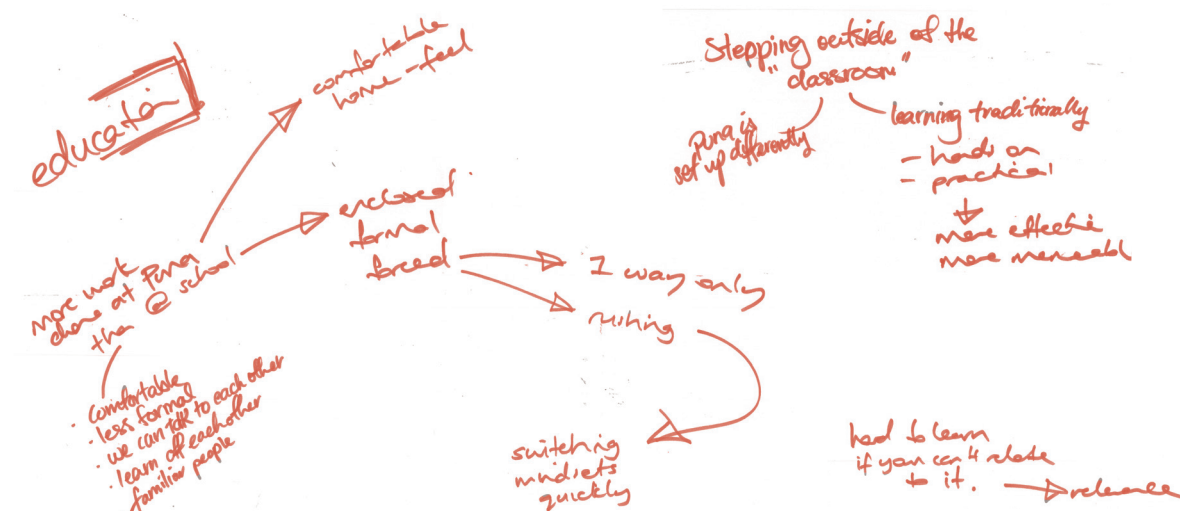 education
comfortable
home-feel
more work
done at Puna
than @ school
enclosed.
formal
forced
1 way only
rushing
switching
mindsets
quickly
• comfortable
• less formal
• we can talk to each other
• learn off each other
familiar people
Stepping outside of the
"classroom"
Puna is
set up differently
learning traditionally
- hands on
- practical
more effective
more
hard to learn
if you can't relate
to it.
relevance